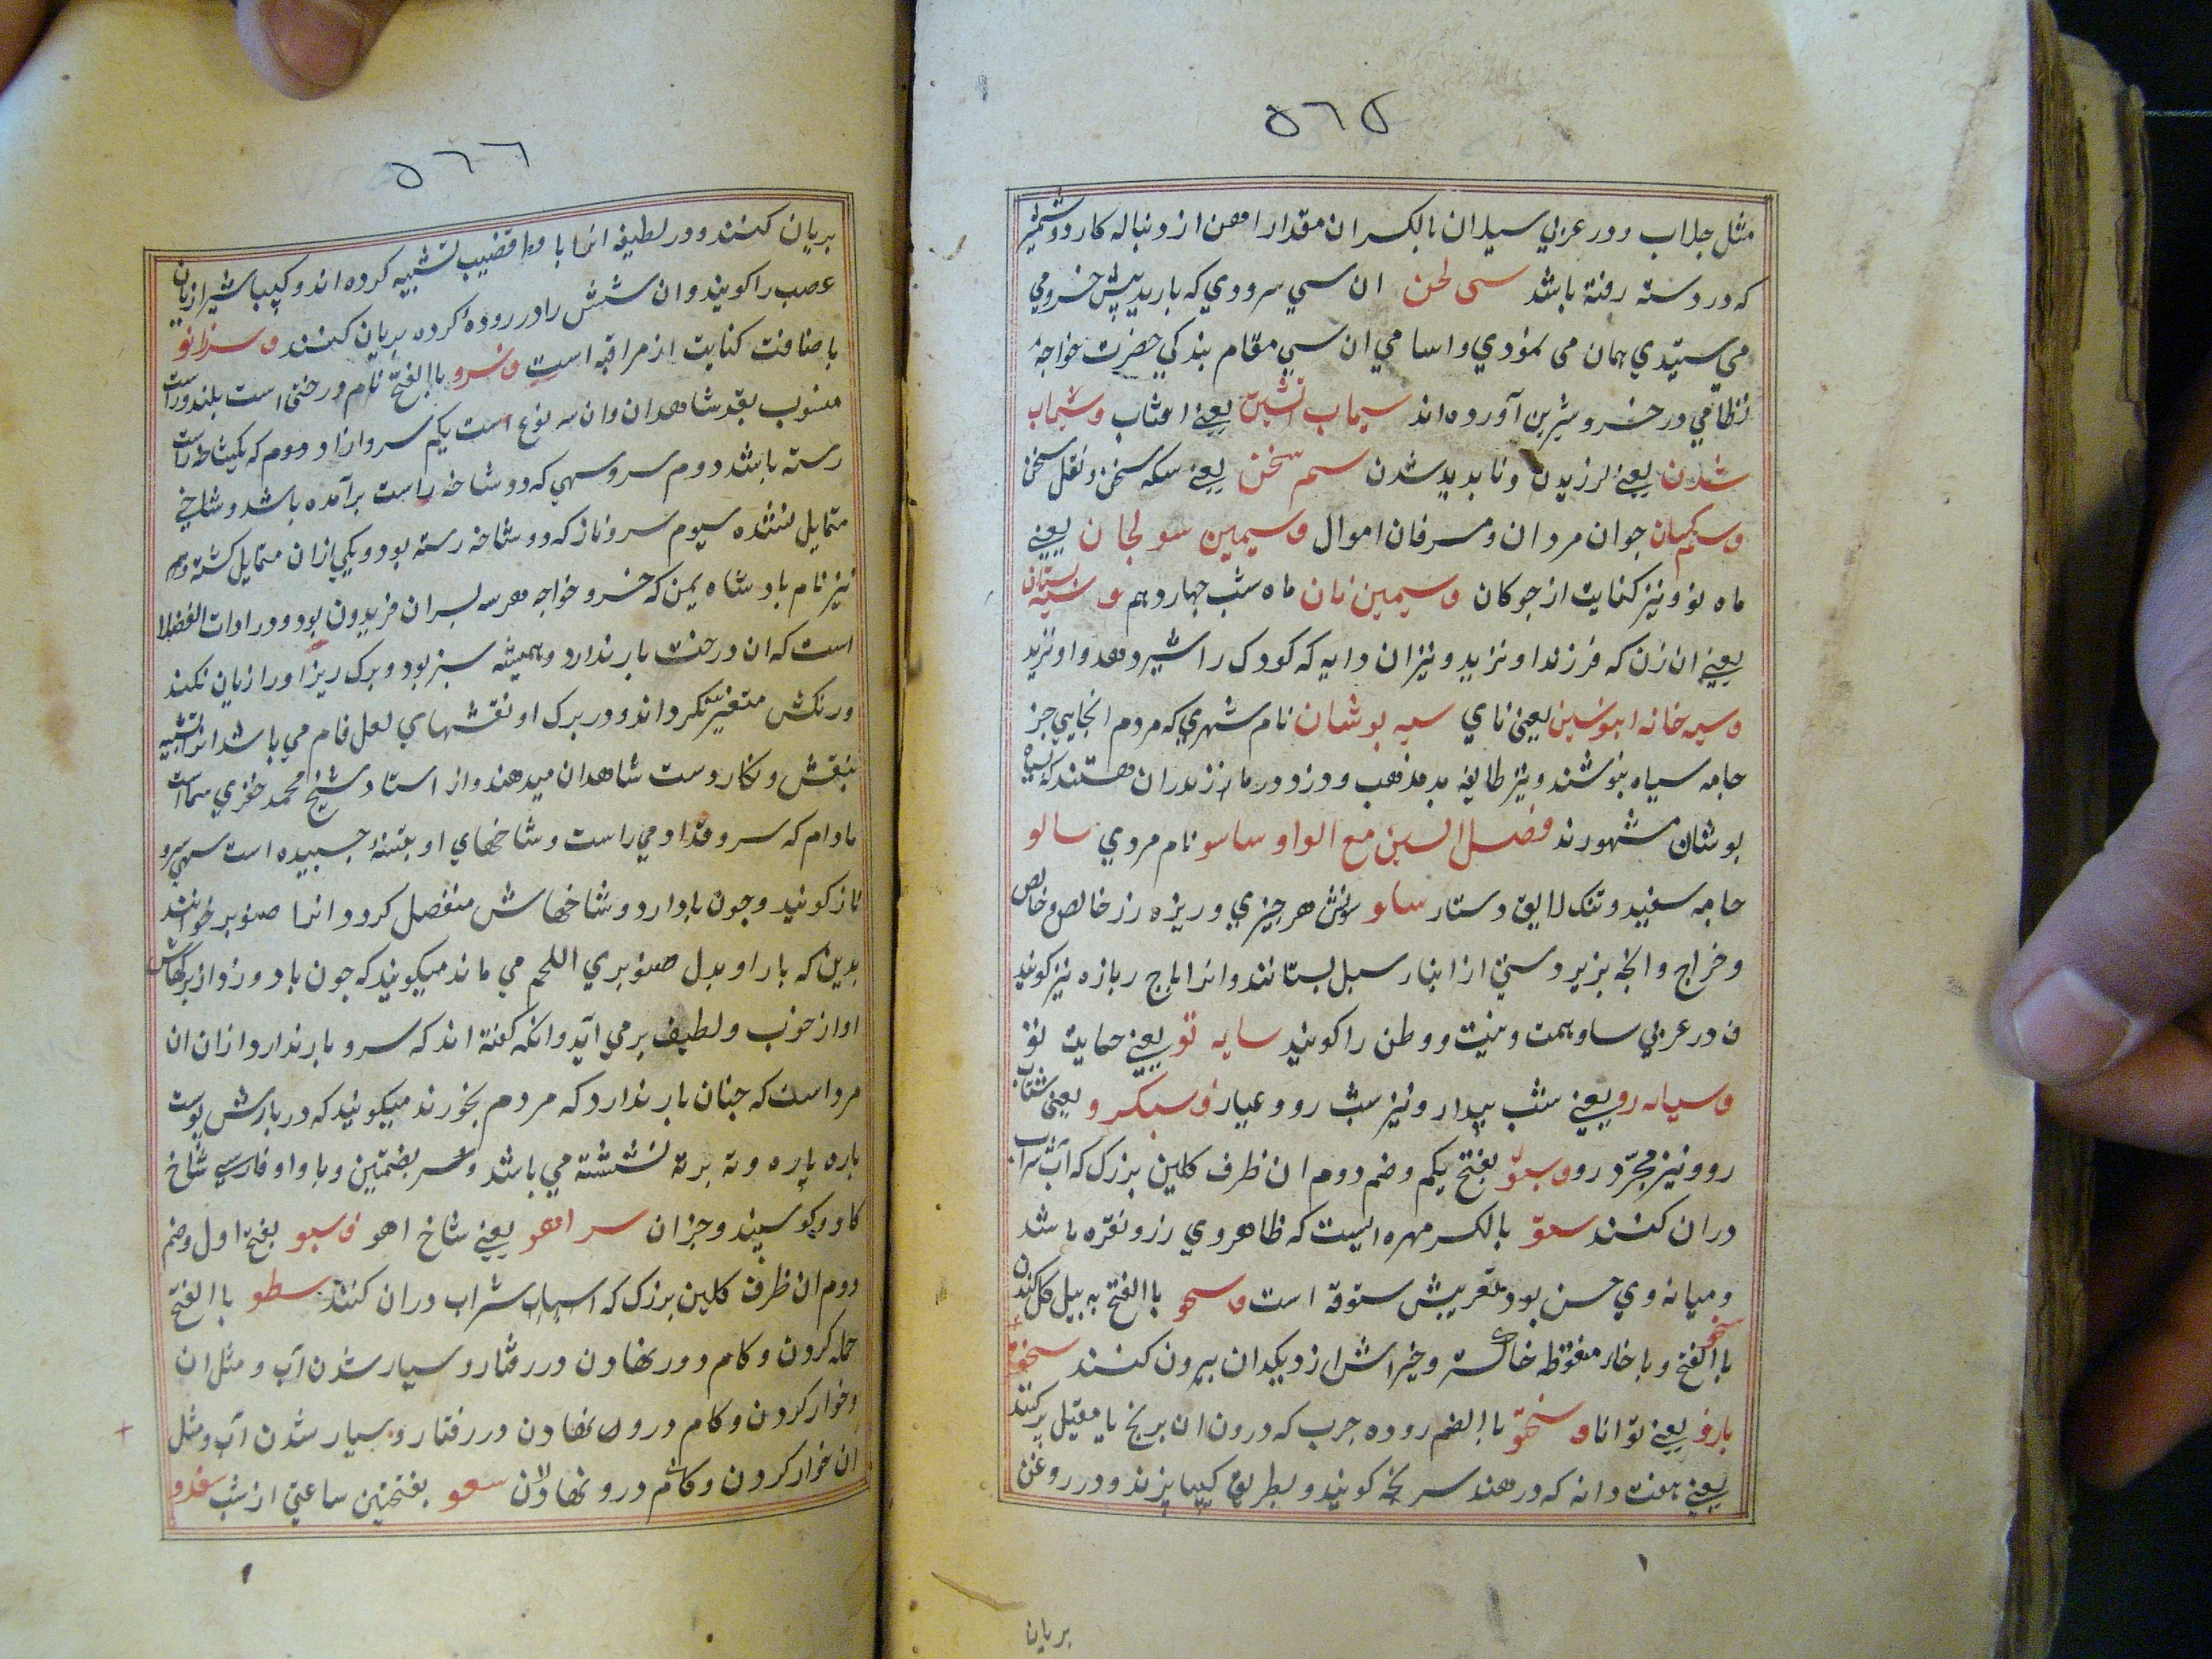 ٥٦٥
مثل جلاب و در عربي سیلان بالکسر ان مقدار اهن از دنباله کارد و شمشیر
که در دسته رفته باشد سی لحن ان سي سرودي که باربد پیش خسرو مي
مي ستیدي همان می نمودي و اسامي ان سي مقام بندکي حضرت خواجهٔ
نظامي در خسرو شیرین آورده اند سیماب اتشین یعنے افتاب و سیماب
شدن یعنے لرزیدن و ناپدید شدن سم سخن یعنے سکه سخن و نقل سخن
و جوان مردان و مسرفان اموال و سیمین سولجان یعنے
ماه نو و نیز کنایت از جوکان و سیمین نان ماه شب چهاردهم و سیه پستان
یعنے ان زن که فرزند او نزید و نیز ان دایه که کودک را شیر دهد او نزید
و سیه خانه ابنوسین یعنی نای سیه پوشان نام شهري که مردم انجایي جز
جامه سیاه نپوشند و نیز طایفه بد مذهب و دزد در مازندران هستند که سیاه
پوشان مشهورند فصل السین مع الواو ساسو نام مردي سالو
جامه سفید و تنک لایق دستار ساو سونش هر چیزي و ریزه زر خالص و خالص
و خراج و انچه بزبردستي از ابنار سبیل بستانند و انرا باج نیز کویند
و در عربي ساو همت و نیت و وطن را کویند سایه تو یعنے حمایت تو
و سیاه رو یعنے شب بیدار و نیز شب رو و عیار و سبکرو یعنی شتاب
رو و نیز مجرّد رو و سبو بفتح یکم و ضم دوم ان ظرف کلین بزرک که آب شراب
دران کنند ستو بالکسر مهره ایست که ظاهر وي زر و نقره باشد
و میانه وي مس بود تعریبش ستوقه است و سحو با الفتح به بیل کل کندن
سخو با الفتح و با خار منقوطه خاکستر و خیر اتش از دیکدان بیرون کنند سخو
بازو یعنے توانا و سختو با الضم روده چرب که درون ان برنج یا قیمه پر کنند
یعنے هفت دانه که در هند سریخه کویند و بطریق کیپا پزند و در روغن
بریان
٥٦٦
بریان کنند و در لطیفه انها با قضیب تشبیه کرده اند و کیپا شیرازیان
عصب را کویند و ان شش را در رودهٔ کرده بریان کنند و سرزانو
باضافت کنایت از مراقبه است و سرو با الفتح نام درختی است بلند و راست
منسوب بقد شاهدان و ان سه نوع است یکم سرو ازاد دوم که یکشاخه راست
رسته باشد دوم سرو سهي که دو شاخه راست برآمده باشد و شاخي
متمایل نشده سیوم سرو ناز که دو شاخه رسته بود و یکي ازان متمایل کشته و هم
نیز نام بادشاه یمن که خسر و خواجه هر سه پسران فریدون بود و در ادات الفضلا
است که ان درخت بار ندارد و همیشه سبز بود و برک ریز او را زیان نکند
و رنکش متغیّر نکرداند و در برک او نقشهاي لعل فام مي باشد انرا تشبیه
بنقش و نکار دست شاهدان میدهند و از استاد شیخ محمد خفري سماعست
مادام که سرو قد ادمي راست و شاخهاي او بتنهٔ چسپیده است سهي سرو
ناز کویند و چون بار دارد و شاخهاش منفصل کردد انرا صنوبر خوانند
بدین که بار او بدل صنوبري اللحم مي ماند میکویند که چون باد وزد از برکهاش
اواز خوب و لطیف برمي آید و انکه کفته اند که سرو بار ندارد ازان ان
مراد است که چنان بار ندارد که مردم بخورند میکویند که در بارش پوست
پاره پاره و ته برته نشسته مي باشد و سر بضمتین و با واو فارسي شاخ
کاو و کوسپند و جز ان سراهو یعنے شاخ اهو و سبو بفتح اول و ضم
دوم ان ظرف کلین بزرک که اسباب شراب دران کنند سطو با الفتح
حمله کردن و کام دور نهادن در رفتار و بسیار شدن آب و مثل ان
و خوار کردن و کام درون نهادن در رفتار و بسیار شدن آب و مثل
ان خوار کردن و کام درو نهادن سعو بفتحتین ساعتي از شب سغدو